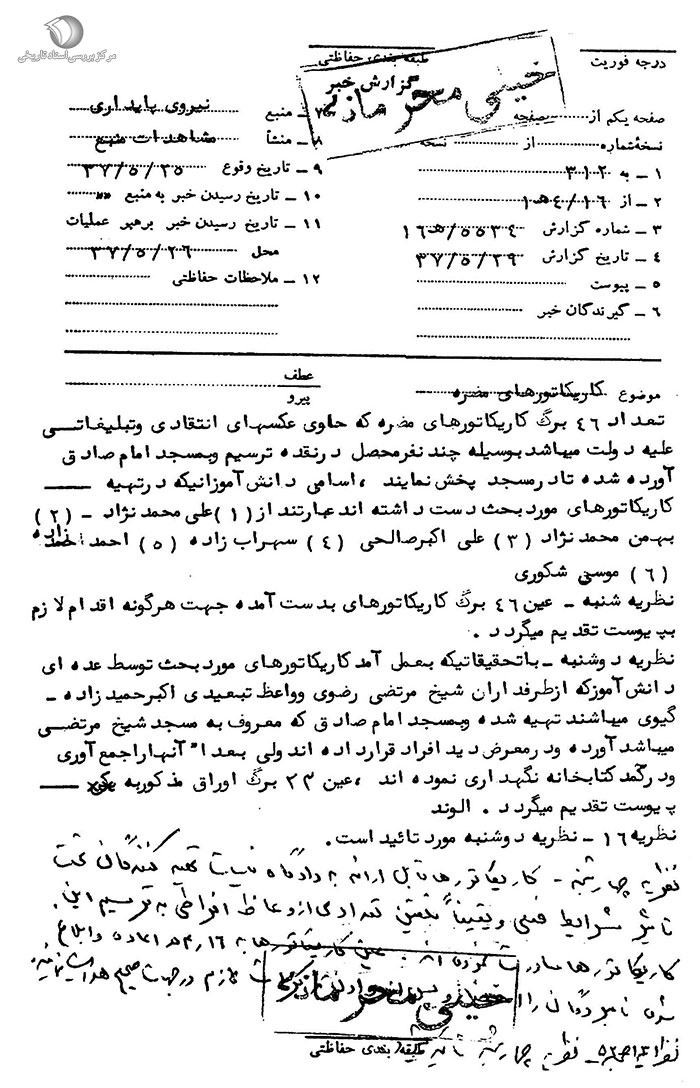 مرکز بررسی اسناد تاریخی
درجه فوریت
طبقه بندی حفاظتی
گزارش خبر
خیلی محرمانه
صفحه یکم از صفحه
نسخهٔ شماره از نسخه
۱ ـ به ۳۱۲
۲ ـ از ۱۶/۴ هـ ۱
۳ ـ شماره گزارش ۵۵۳۴/ ۱۶ هـ
۴ ـ تاریخ گزارش ۳۷/۵/۲۹
۵ ـ پیوست
۶ ـ گیرندگان خبر
۷ ـ منبع نیروی پایداری
۸ ـ منشأ مشاهدات منبع
۹ ـ تاریخ وقوع ۳۷/۵/۲۵
۱۰ ـ تاریخ رسیدن خبر به منبع »»
۱۱ ـ تاریخ رسیدن خبر برهبر عملیات
محل ۳۷/۵/۲۶
۱۲ ـ ملاحظات حفاظتی
موضوع کاریکاتورهای مضره
عطف
پیرو
تعداد ۴۶ برگ کاریکاتورهای مضره که حاوی عکسهای انتقادی وتبلیغاتی
علیه دولت میباشد بوسیله چند نفر محصل درنقده ترسیم وبمسجد امام صادق
آورده شده تادر مسجد پخش نمایند ، اسامی دانش آموزانیکه درتهیه
کاریکاتورهای مورد بحث دست داشته اند عبارتند از (۱) علی محمدنژاد ـ (۲)
بهمن محمدنژاد (۳) علی اکبرصالحی (۴) سهراب زاده (۵) احمد احمدزاده
(۶) موسی شکوری
نظریه شنبه ـ عین ۴۶ برگ کاریکاتورهای بدست آمده جهت هرگونه اقدام لازم
بپیوست تقدیم میگردد .
نظریه دوشنبه ـ باتحقیقاتیکه بعمل آمد کاریکاتورهای مورد بحث توسط عده ای
دانش آموزکه ازطرفداران شیخ مرتضی رضوی وواعظ تبعیدی اکبرحمیدزاده ـ
گیوی میباشند تهیه شده وبمسجد امام صادق که معروف به مسجد شیخ مرتضی
میباشد آورده ودر معرض دید افراد قرارداده اند ولی بعداً آنهاراجمع آوری
ودرکمد کتابخانه نگهداری نموده اند ، عین ۲۳ برگ اوراق مذکوربه
پیوست تقدیم میگردد . الوند
نظریه ۱۶ ـ نظریه دوشنبه مورد تائید است.
نظریه چهارشنبه ـ کاریکاتورها قابل ارائه به دادگاه نیست تهیه کنندگان تحت
تاثیر شرایط فعلی و یقیناً بتلقین تعدادی از وعاظ افراطی به ترسیم این
کاریکاتورها مبادرت نموده اند. عین کاریکاتورها به ۱۶/۴ هـ اعاده و ابلاغ
شده نامبردگان را لازم در جهات صحیح هدایت نمایند.
خیلی محرمانه
نظریه چهارشنبه تائید
طبقه بندی حفاظتی